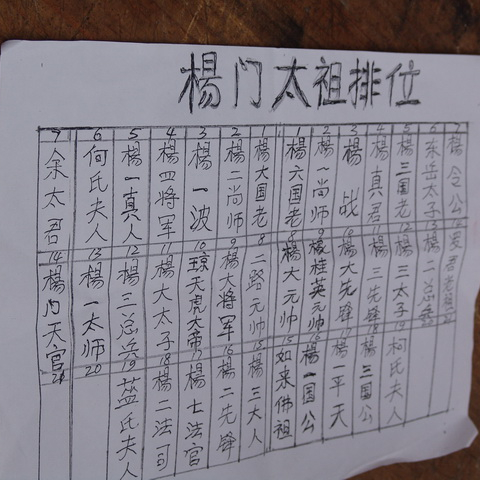 楊门太祖排位
7 余太君
6 何氏夫人
5 楊一真人
4 楊四將军
3 楊一波
2 楊二尚师
1 楊大国老
1 楊六国老
2 楊一尚师
3 楊战
4 楊真君
5 楊三国老
6 东岳太子
7 楊令公
14 楊门天官
13 楊一太师
12 楊三总兵
11 楊大太子
10 琼天虎大帝
9 楊大将军
8 二路元帅
8 楊大元帅
9 桂英元帅
10 楊大先锋
11 楊三先锋
12 楊三太子
13 楊二总兵
21
20
19 蓝氏夫人
18 楊二法司
17 楊七法官
16 楊二先锋
15 楊三大人
15 如来佛祖
16 楊一国公
17 楊一平天
18 楊三国公
19 柯氏夫人